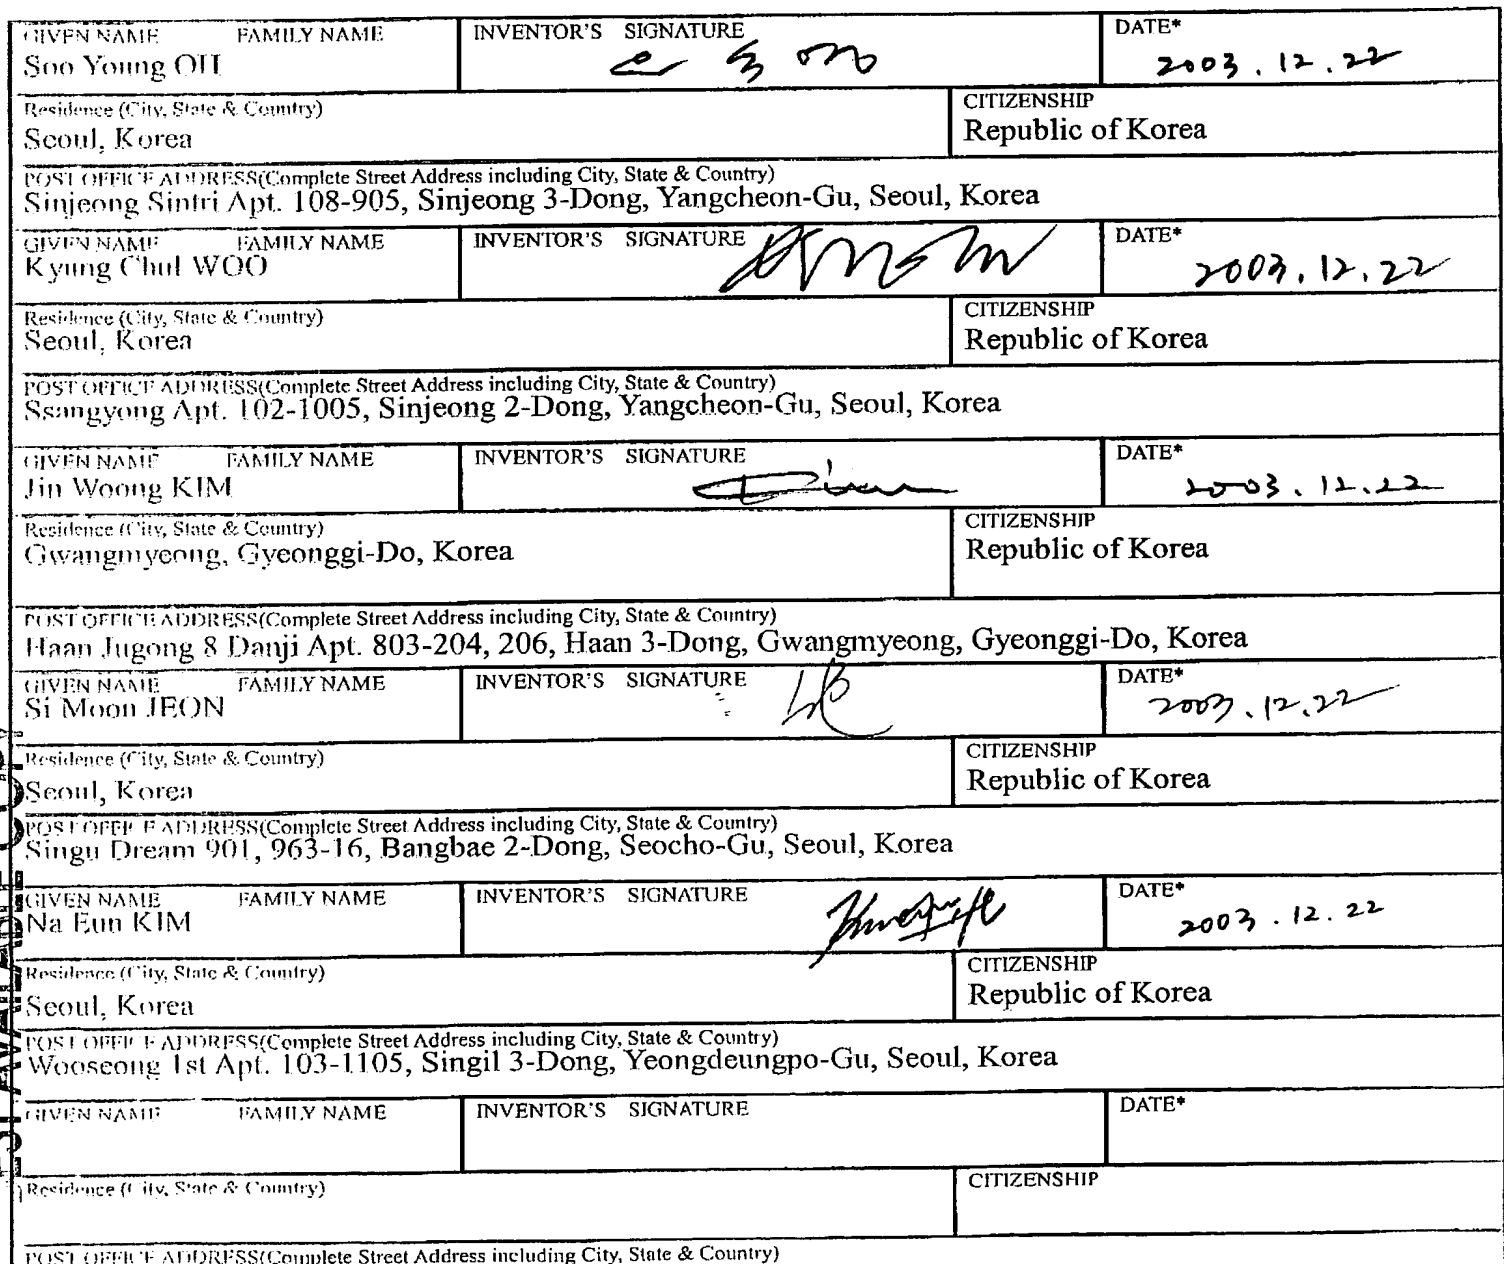 GIVEN NAME FAMILY NAME INVENTOR'S SIGNATURE DATE*
Soo Young OH 2003.12.22
Residence (City, State & Country) CITIZENSHIP
Seoul, Korea Republic of Korea
POST OFFICE ADDRESS(Complete Street Address including City, State & Country)
Sinjeong Sintri Apt. 108-905, Sinjeong 3-Dong, Yangcheon-Gu, Seoul, Korea
GIVEN NAME FAMILY NAME INVENTOR'S SIGNATURE DATE*
Kyung Chul WOO 2003.12.22
Residence (City, State & Country) CITIZENSHIP
Seoul, Korea Republic of Korea
POST OFFICE ADDRESS(Complete Street Address including City, State & Country)
Ssangyong Apt. 102-1005, Sinjeong 2-Dong, Yangcheon-Gu, Seoul, Korea
GIVEN NAME FAMILY NAME INVENTOR'S SIGNATURE DATE*
Jin Woong KIM 2003.12.22
Residence (City, State & Country) CITIZENSHIP
Gwangmyeong, Gyeonggi-Do, Korea Republic of Korea
POST OFFICE ADDRESS(Complete Street Address including City, State & Country)
Haan Jugong 8 Danji Apt. 803-204, 206, Haan 3-Dong, Gwangmyeong, Gyeonggi-Do, Korea
GIVEN NAME FAMILY NAME INVENTOR'S SIGNATURE DATE*
Si Moon JEON 2003.12.22
Residence (City, State & Country) CITIZENSHIP
Seoul, Korea Republic of Korea
POST OFFICE ADDRESS(Complete Street Address including City, State & Country)
Singu Dream 901, 963-16, Bangbae 2-Dong, Seocho-Gu, Seoul, Korea
GIVEN NAME FAMILY NAME INVENTOR'S SIGNATURE DATE*
Na Eun KIM 2003.12.22
Residence (City, State & Country) CITIZENSHIP
Seoul, Korea Republic of Korea
POST OFFICE ADDRESS(Complete Street Address including City, State & Country)
Wooseong 1st Apt. 103-1105, Singil 3-Dong, Yeongdeungpo-Gu, Seoul, Korea
GIVEN NAME FAMILY NAME INVENTOR'S SIGNATURE DATE*
Residence (City, State & Country) CITIZENSHIP
POST OFFICE ADDRESS(Complete Street Address including City, State & Country)